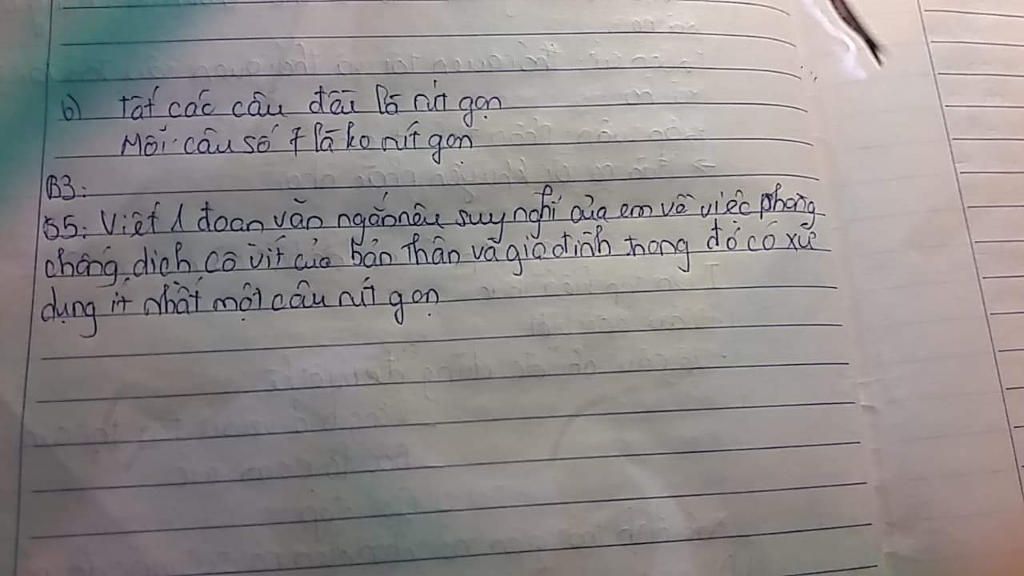 b) tất các câu đều là rút gọn
Mỗi câu số 7 là ko rút gọn
B3:
B5: Viết 1 đoạn văn ngắn nêu suy nghĩ của em về việc phòng
chống dịch cô vít của bản thân và gia đình trong đó có xử
dụng ít nhất một câu rút gọn